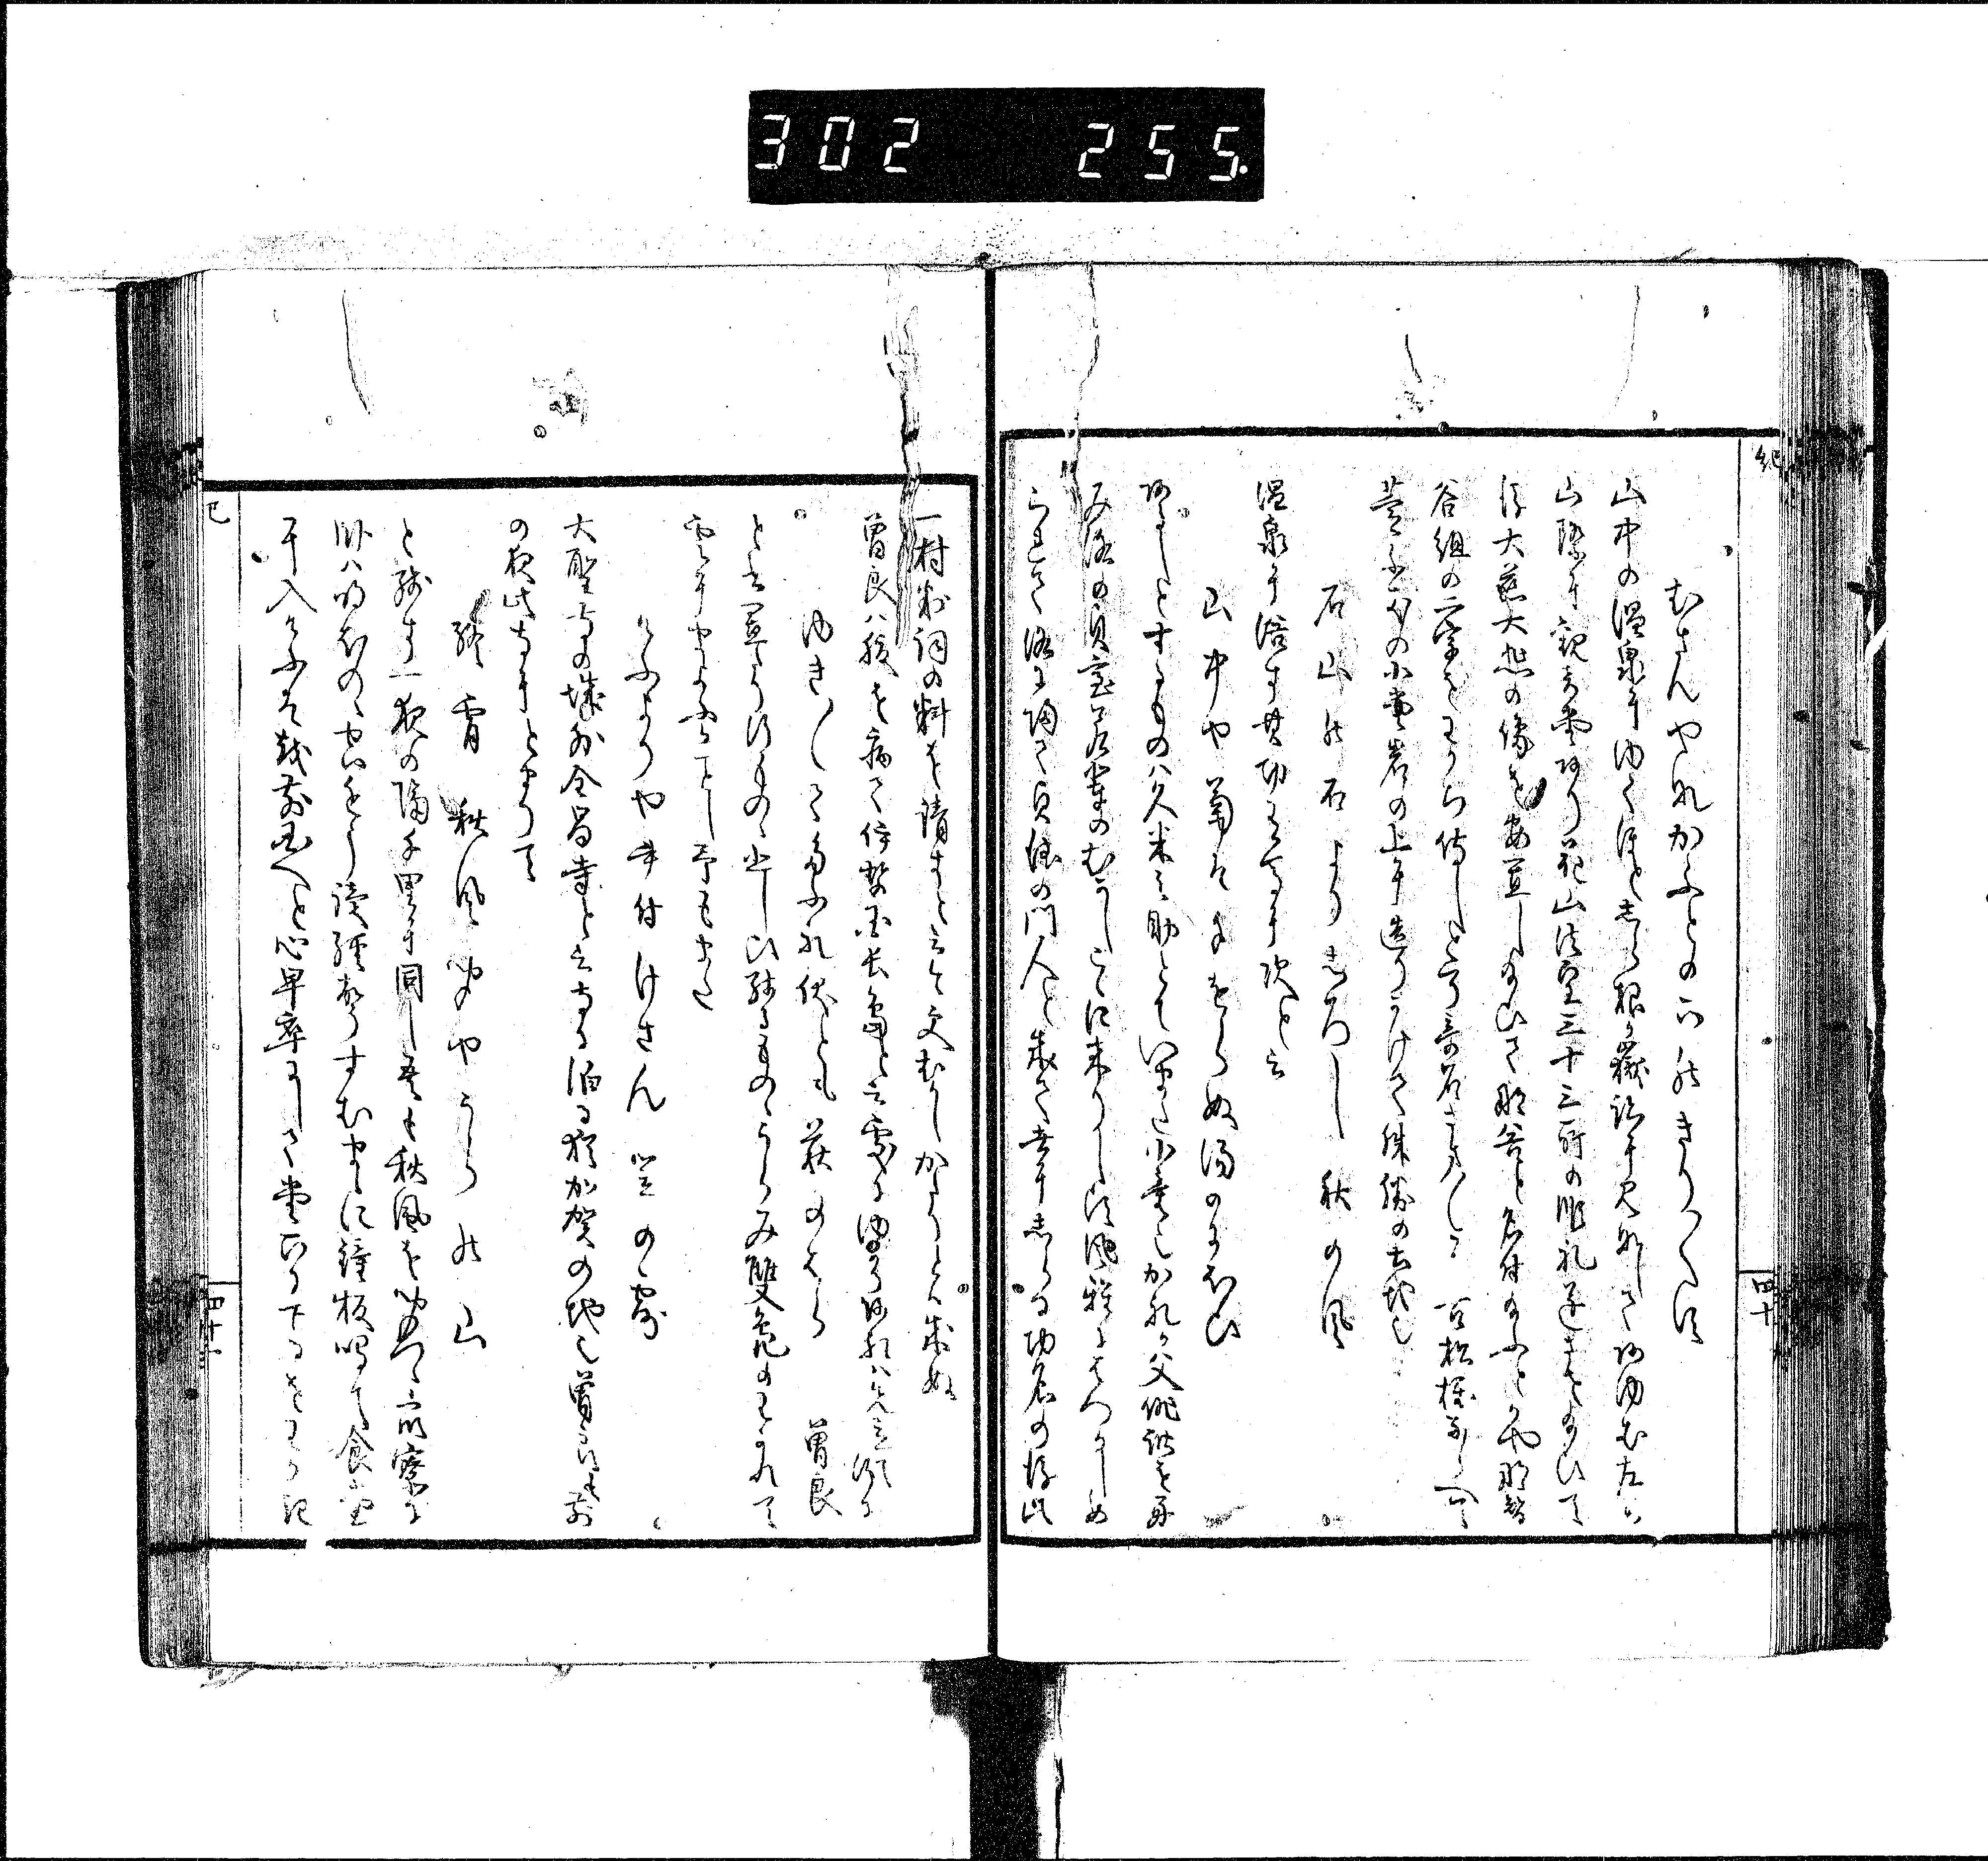 302 255
紀
むさんやなかふとの下のきりくす
山中の温泉にゆくほとしら根か嶽跡に見なしてあゆむ左の
山際に観音堂あり花山法皇三十三所の順礼とけさせ給ひて
後大慈大悲の像を安置し給ひて那谷と名付給ふとかや那智
谷組の二字をわかち侍しとそ奇石さま〳〵に古松植ならへて
萱ふきの小堂岩の上に造りかけて殊勝の土地也
石山の石より しろし 秋の風
温泉に浴す其功有馬に次と云
山中や菊はたをらぬ湯のにほひ
あるしとするものは久米之助とていまた小童也かれか父俳諧を好
み洛の貞室若輩のむかしこゝに来りし比風雅にはつかしめ
られて洛に帰て貞徳の門人と成て世にしらる功名の後此
四十
一村判詞の料を請すと云今更むかしかたりとは成ぬ
曽良は腹を病て伊勢の国長島と云處にゆかりあれは先立て行に
ゆき〳〵てたふれ伏とも萩のはら 曽良
と書置たり行ものゝ悲しひ残るものゝうらみ雙鳧のわかれて
雲にまよふことし予もまた
けふよりや書付けさん笠の露
大聖寺の城外全昌寺と云寺に泊る猶加賀の地也曽良も前
の夜此寺にとまりて
終宵 秋風聞やうらの山
と残す一夜の隔千里に同し吾も秋風を聞つゝ衆寮に
臥は明ほのゝ空近う読経声すむまゝに鐘板鳴て食堂
に入けふは越前の国へと心早卒にして堂下に下るをわかき
四十一